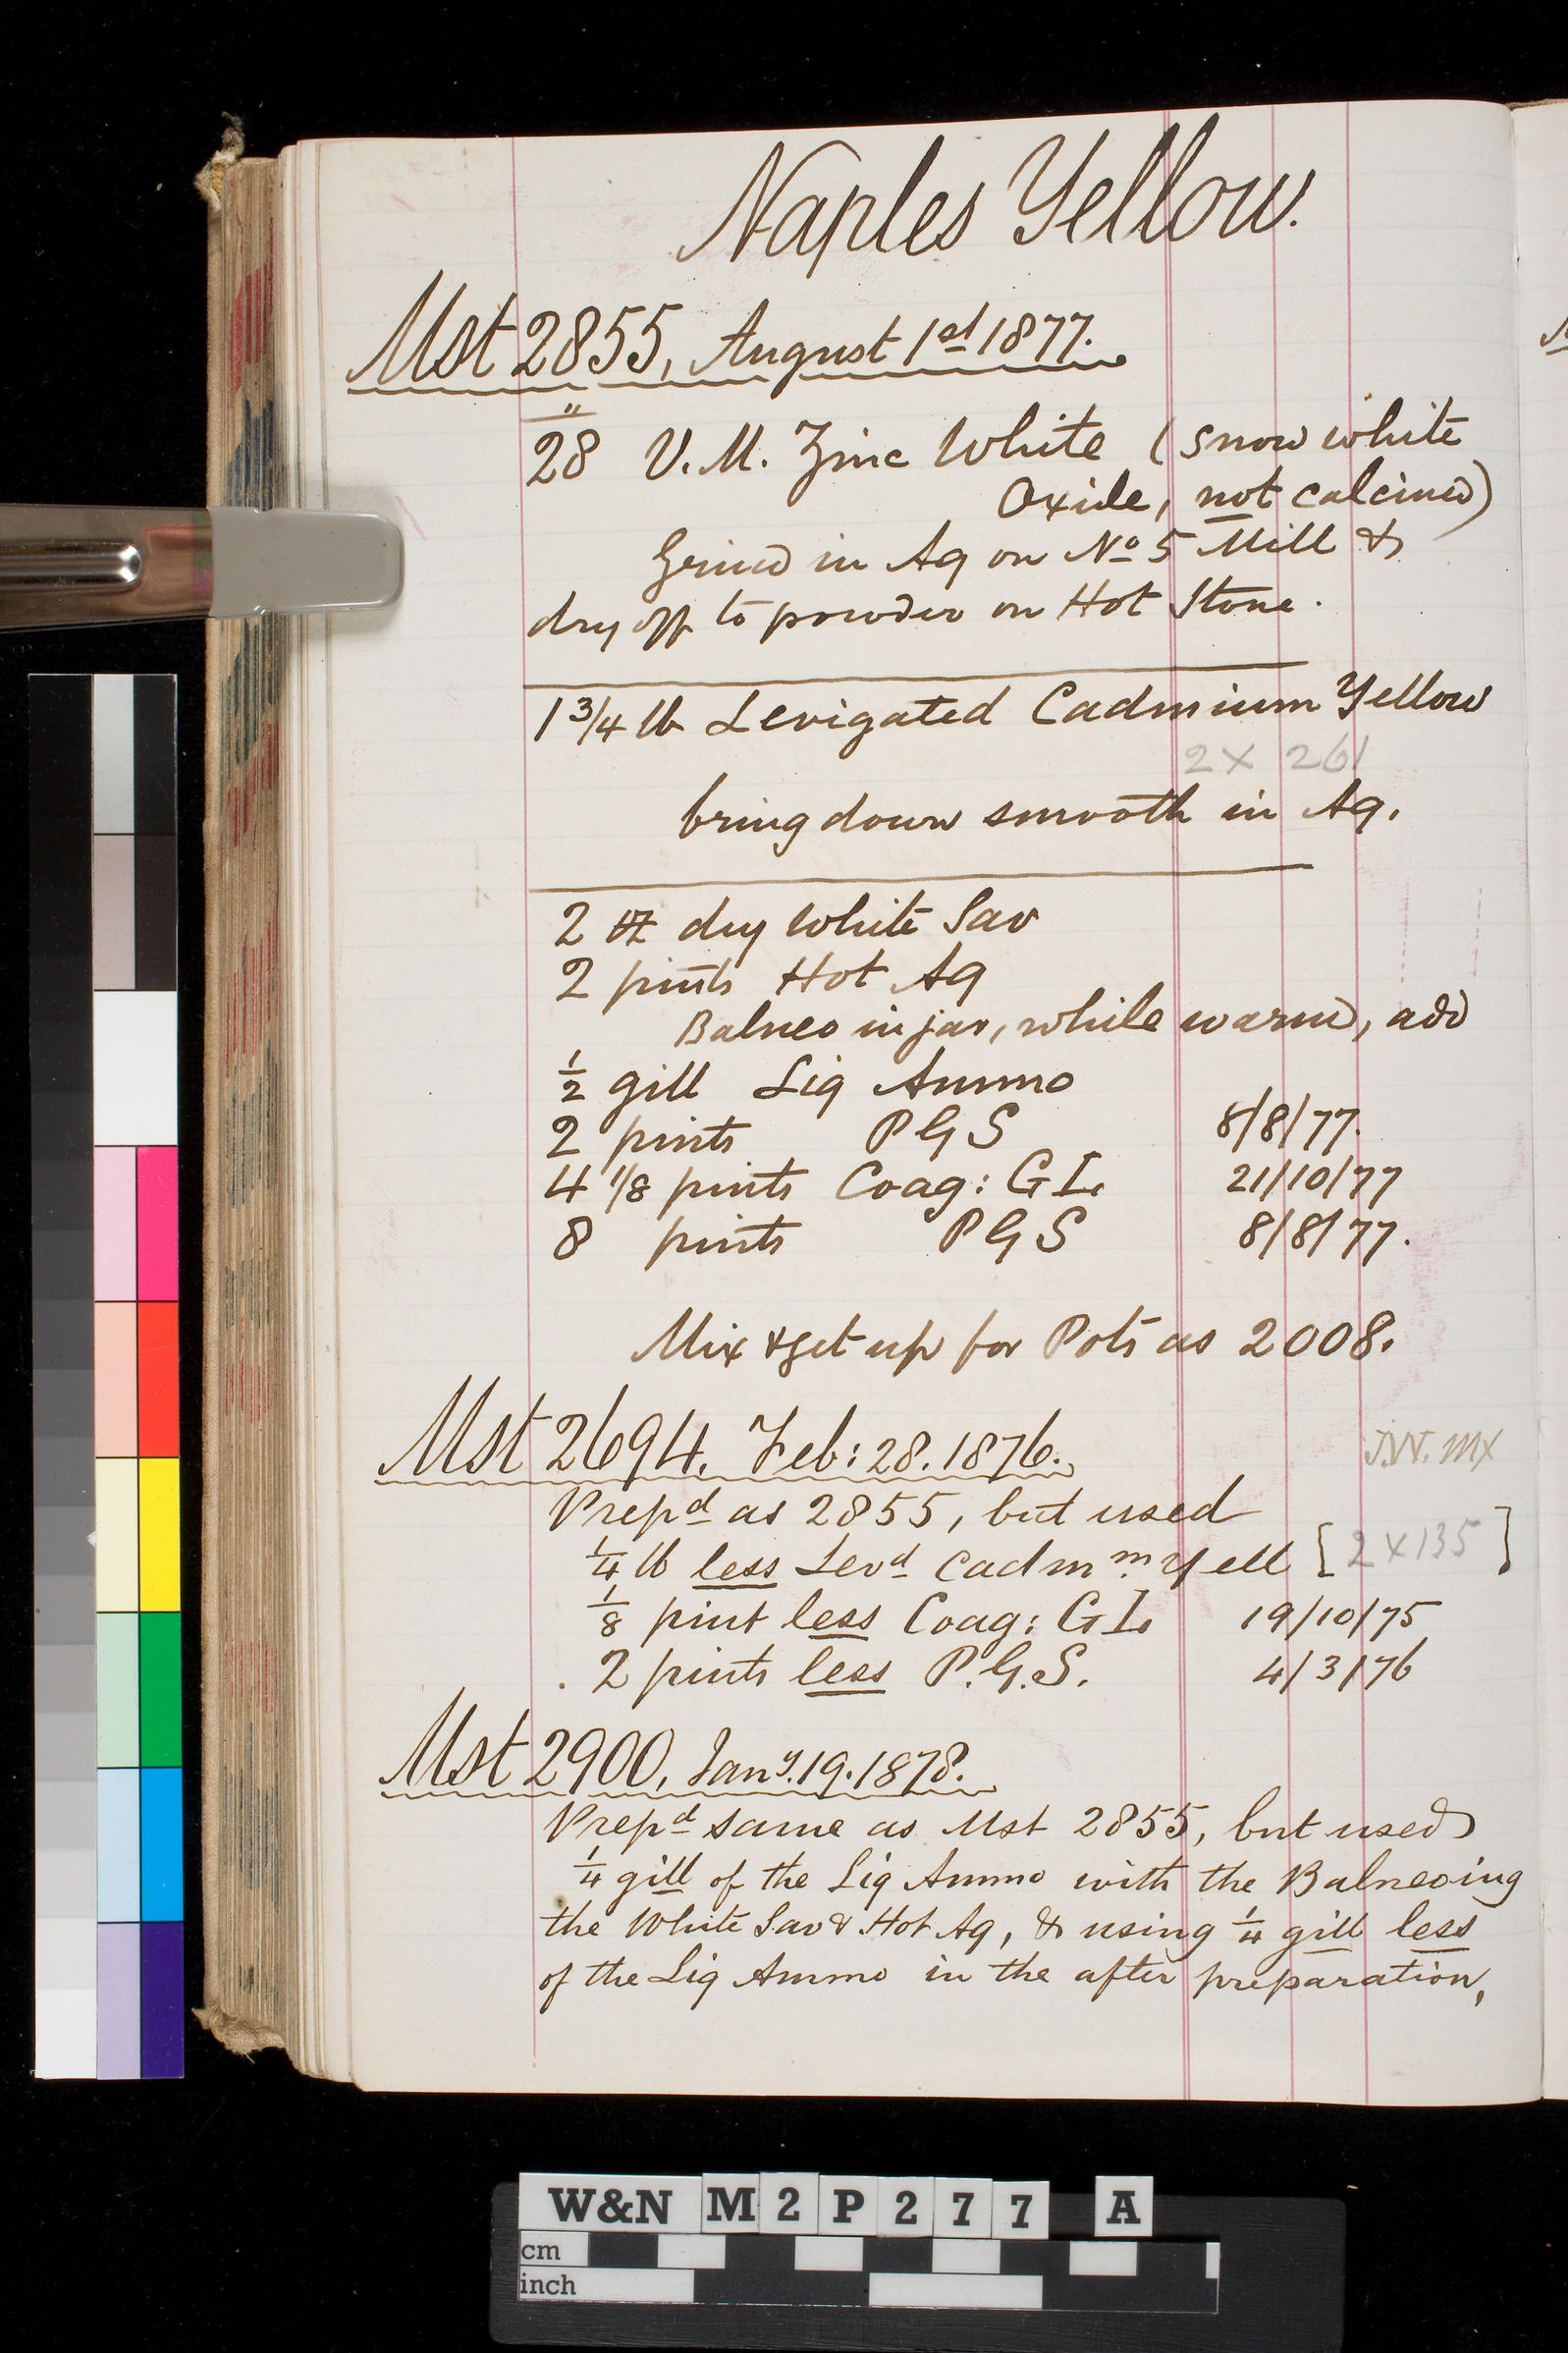 Naples Yellow.
Mst 2855, August 1st 1877.
"
28 V. M. Zinc White (Snow white
Oxide, not calcined)
Grind in Aq on No 5 Mill &
dry off to powder on Hot Stone.
1 3/4 lb Levigated Cadmium Yellow
2 X 261
bring down smooth in Aq.
2 oz dry White Sav
2 pints Hot Aq
Balneo in jar, while warm, add
1/2 gill Liq Ammo
2 pints P G S 8/8/77.
4 1/8 pints Coag: G L. 21/10/77
8 pints P G S 8/8/77.
Mix & get up for Pots as 2008.
Mst 2694. Feb: 28. 1876.
Prepd as 2855, but used
1/4 lb less Levd Cadmm Yell [2 X 135]
1/8 pint less Coag: G L. 19/10/75
2 pints less P.G.S. 4/3/76
Mst 2900, Jany. 19. 1878.
Prepd same as Mst 2855, but used
1/4 gill of the Liq Ammo with the Balneoing
the White Sav & Hot Aq, & using 1/4 gill less
of the Liq Ammo in the after preparation,
W&N M2P277 A
cm
inch